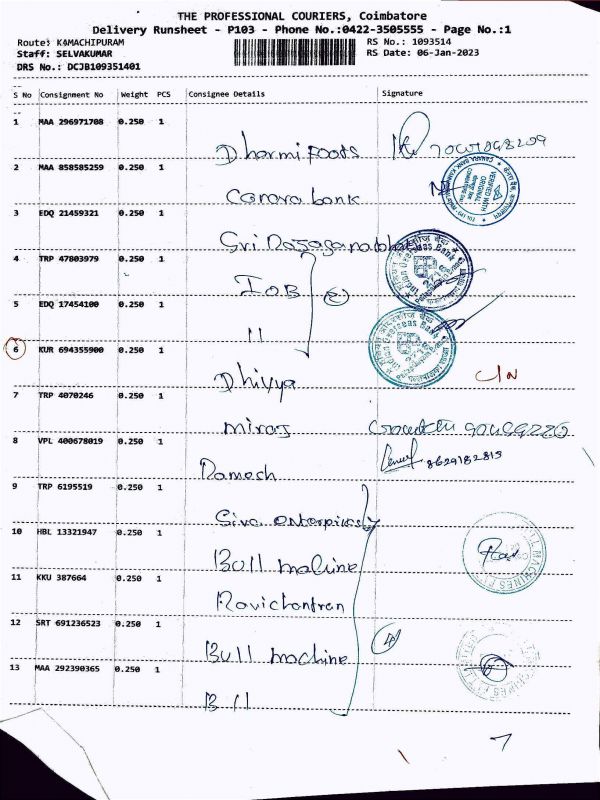 THE PROFESSIONAL COURIERS, Coimbatore
Delivery Runsheet - P103 - Phone No.:0422-3505555 - Page No.:1
Route: KAMACHIPURAM
RS No.: 1093514
Staff: SELVAKUMAR
RS Date: 06-Jan-2023
DRS No.: DCJB109351401
S No Consignment No Weight PCS Consignee Details Signature
1 MAA 296971708 0.250 1
Dharmi Foods
2 MAA 858585259 0.250 1
Canara bank
3 EDQ 21459321 0.250 1
Sri
4 TRP 47803979 0.250 1
IOB
5 EDQ 17454100 0.250 1
11
6 KUR 694355900 0.250 1
Dhivya
7 TRP 4070246 0.250 1
miraj
8 VPL 400678019 0.250 1
Ramesh 8629182815
9 TRP 6195519 0.250 1
Siva enterprises
10 HBL 13321947 0.250 1
Bull machine
11 KKU 387664 0.250 1
Ravichantran
12 SRT 691236523 0.250 1
Bull machine
13 MAA 292390365 0.250 1
B 11
VERIFIED WITH ORIGINAL
Indian Overseas Bank
Indian Overseas Bank